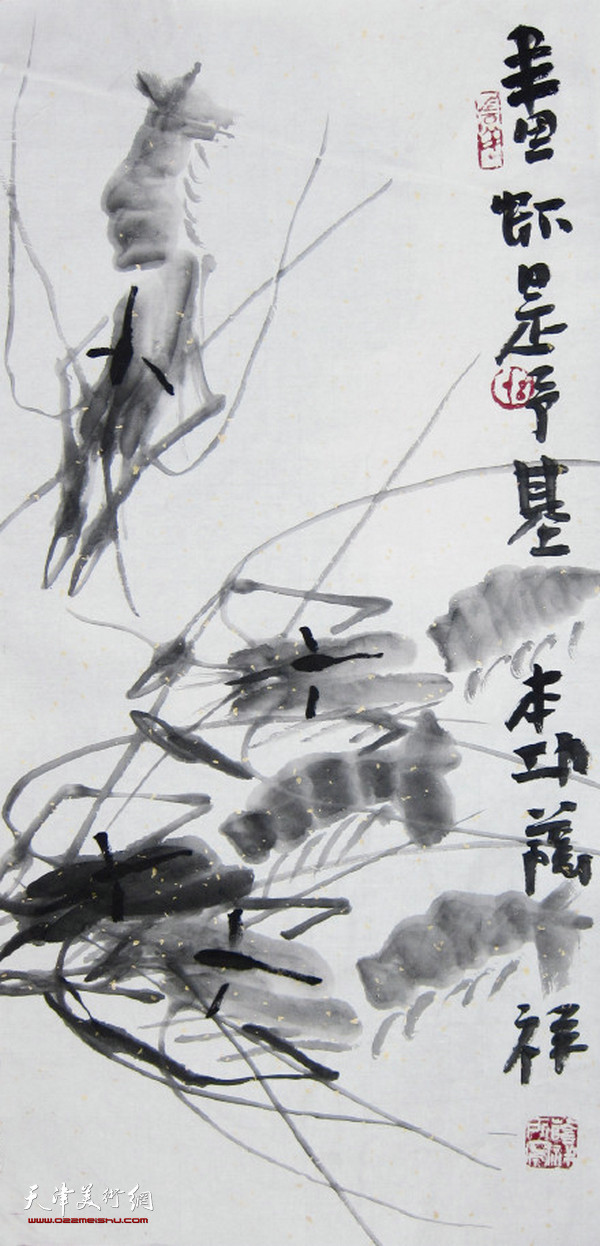 畫虾是予基本功祥
天津美術網
www.022meishu.com